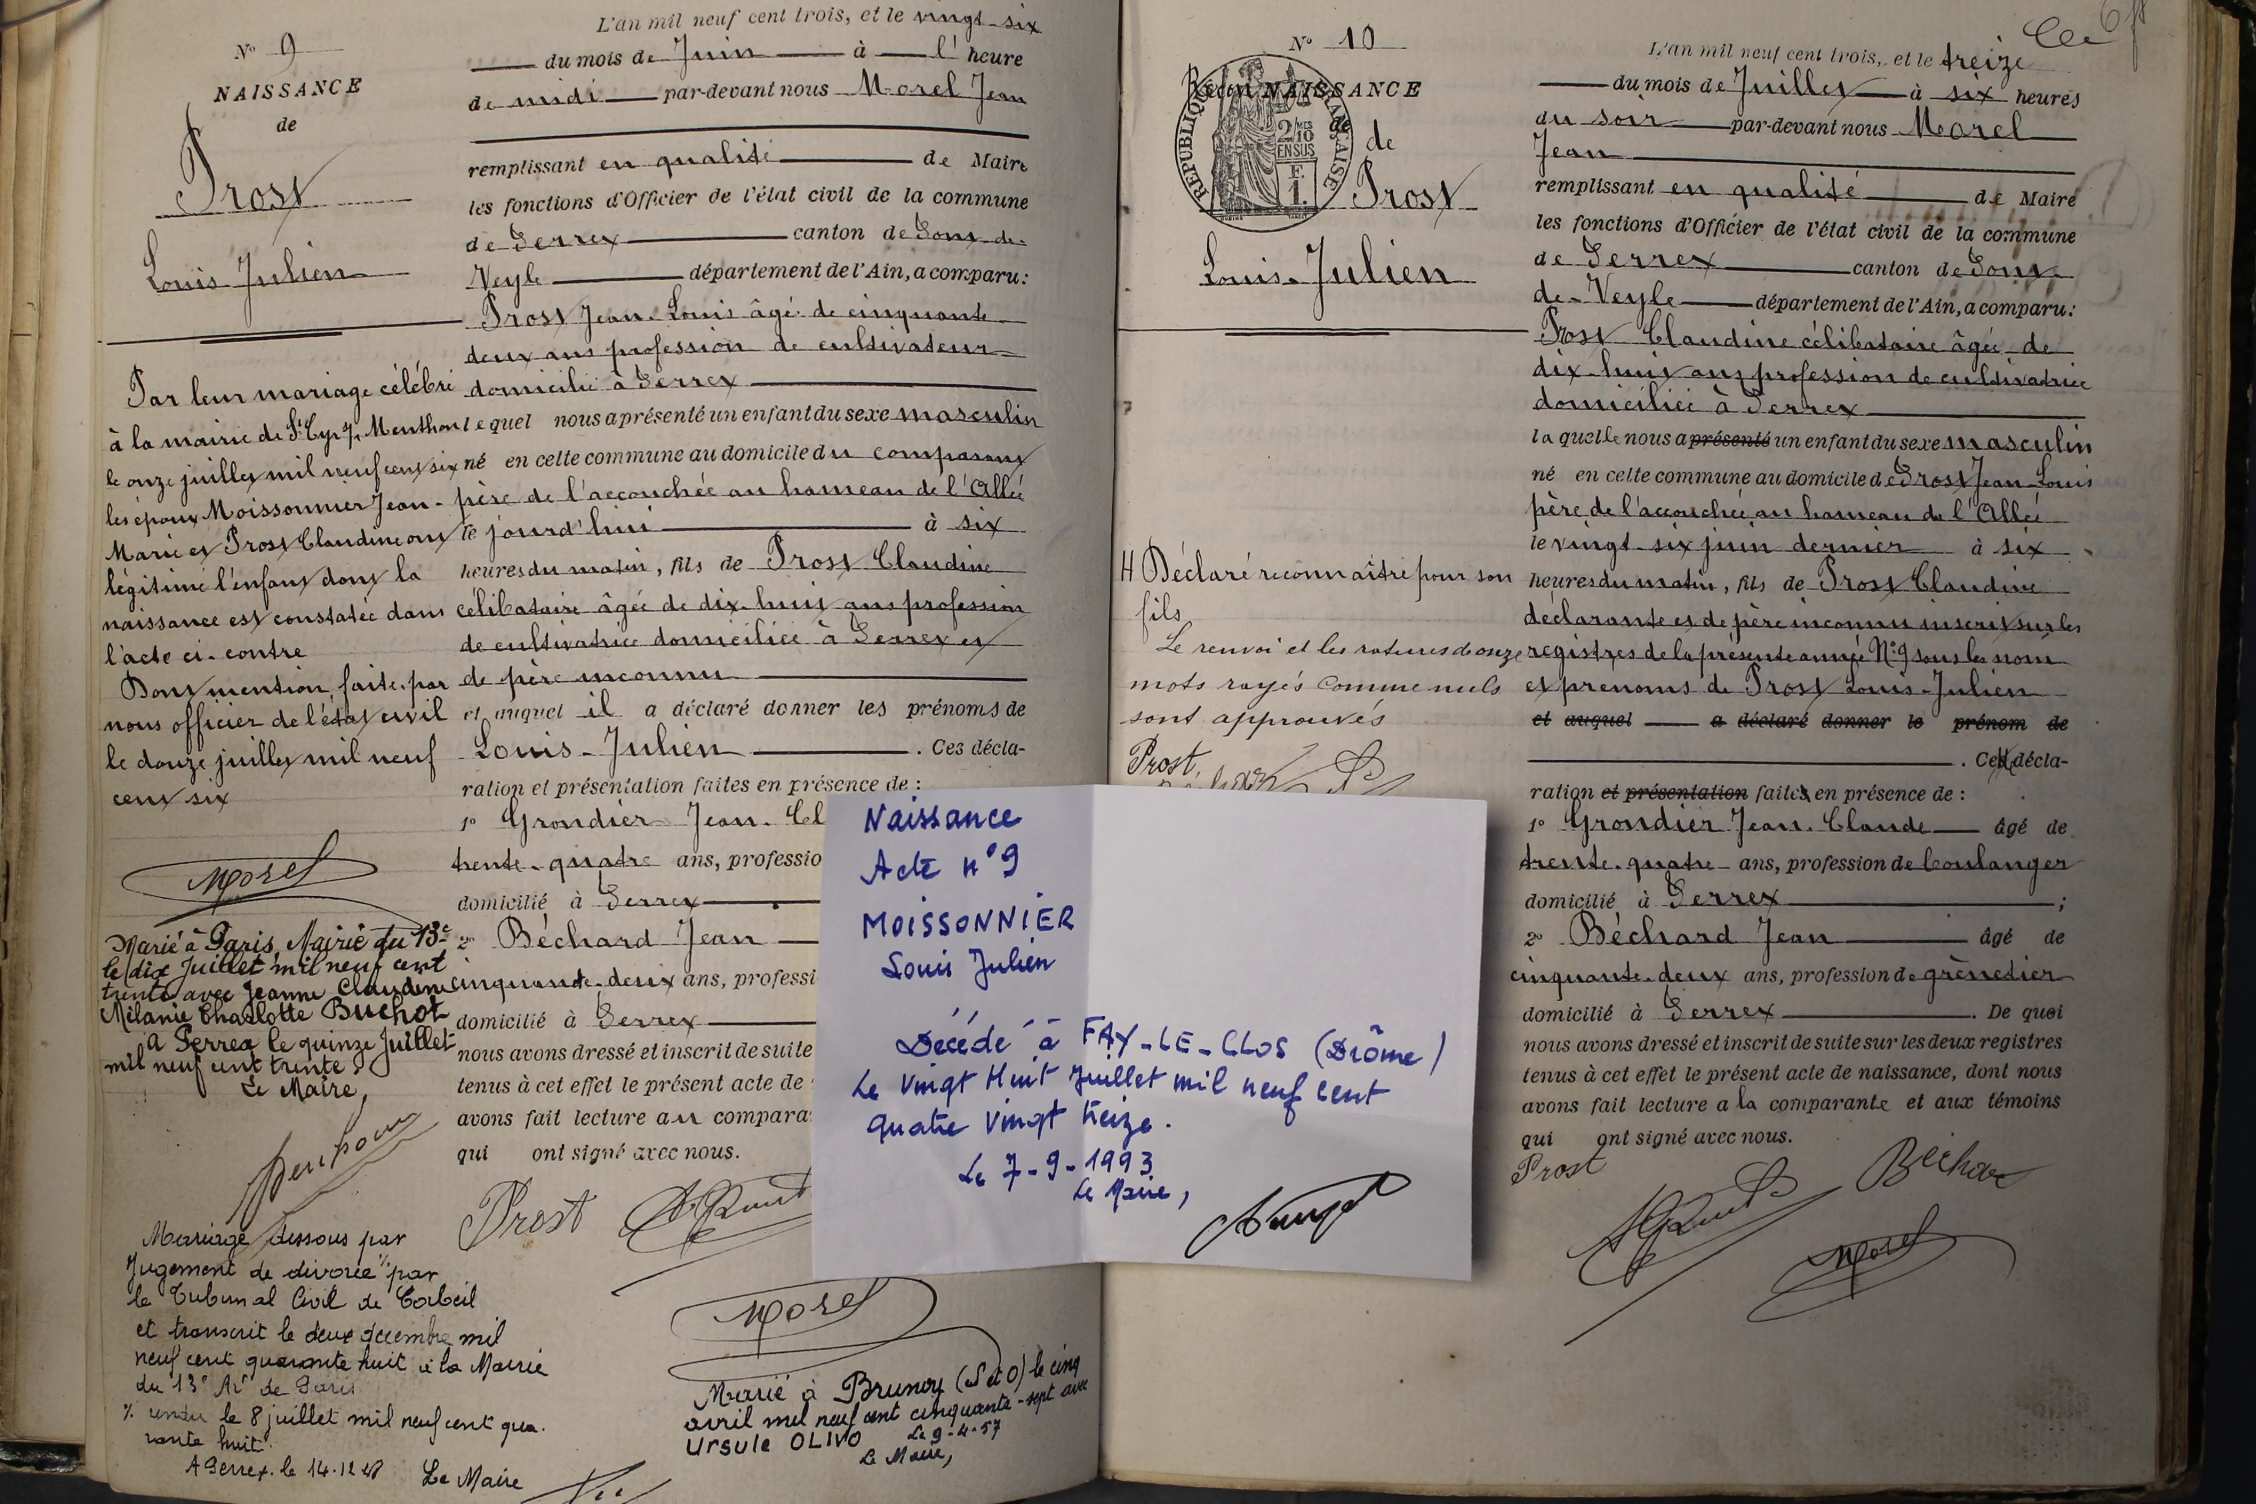 N° 9
NAISSANCE
de
Prost
Louis Julien
L'an mil neuf cent trois, et le vingt-six
du mois de Juin à l' heure
de midi par-devant nous Morel Jean
remplissant en qualité de Maire
les fonctions d'Officier de l'état civil de la commune
de Perrex canton de Pont-de-
Veyle département de l'Ain, a comparu:
Prost Jean-Louis âgé de cinquante
deux ans profession de cultivateur
domicilié à Perrex
lequel nous a présenté un enfant du sexe masculin
né en cette commune au domicile du comparant
père de l'accouchée au hameau de l'Allée
le jourd'hui à six
heures du matin, fils de Prost Claudine
célibataire âgée de dix-huit ans profession
de cultivatrice domiciliée à Perrex et
de père inconnu
et auquel il a déclaré donner les prénoms de
Louis-Julien . Ces décla-
ration et présentation faites en présence de :
1° Grondier Jean-Cl
trente-quatre ans, professio
domicilié à Perrex
2° Béchard Jean
cinquante-deux ans, professi
domicilié à Perrex
nous avons dressé et inscrit de suite
tenus à cet effet le présent acte de
avons fait lecture au compara
qui ont signé avec nous.
Prost
Morel
Par leur mariage célébré
à la mairie de St Cyr s/ Menthon
le onze juillet mil neuf cent six
les époux Moissonnier Jean-
Marie et Prost Claudine ont
légitimé l'enfant dont la
naissance est constatée dans
l'acte ci-contre
Dont mention faite par
nous officier de l'état civil
le douze juillet mil neuf
cent six
Morel
Marié à Paris, Mairie du 13e
le dix Juillet mil neuf cent
trente avec Jeanne Claudine
Mélanie Charlotte Buchot
A Perrex le quinze Juillet
mil neuf cent trente.
Le Maire,
Mariage dissous par
Jugement de divorce % par
le Tribunal Civil de Corbeil
et transcrit le deux décembre mil
neuf cent quarante huit à la Mairie
du 13e Art de Paris
% rendu le 8 juillet mil neuf cent qua-
rante huit.
A Perrex le 14.12.48
Le Maire
Marié à Brunoy (S et O) le cinq
avril mil neuf cent cinquante-sept avec
Ursule OLIVO
Le 9-4-57
Le Maire,
Naissance
Acte n°9
MOISSONNIER
Louis Julien
Décédé à FAY-LE-CLOS (Drôme)
Le Vingt Huit Juillet mil neuf cent
quatre vingt treize.
Le 7-9-1993
Le Maire,
N° 10
Recon NAISSANCE
de
de
RÉPUBLIQUE FRANÇAISE
2/10
MES
EN SUS
F.
1.
Prost
Louis-Julien
L'an mil neuf cent trois, et le treize
du mois de Juillet à six heures
du soir par-devant nous Morel
Jean
remplissant en qualité de Maire
les fonctions d'Officier de l'état civil de la commune
de Perrex canton de Pont-
de-Veyle département de l'Ain, a comparu:
Prost Claudine célibataire âgée de
dix-huit ans profession de cultivatrice
domiciliée à Perrex
laquelle nous a présenté un enfant du sexe masculin
né en cette commune au domicile de Prost Jean-Louis
père de l'accouchée au hameau de l'Allée
le vingt-six juin dernier à six
heures du matin, fils de Prost Claudine
déclarante et de père inconnu inscrit sur les
registres de la présente année N°9 sous les nom
et prenoms de Prost Louis-Julien
et auquel a déclaré donner le prénom de
. Cette décla-
ration et présentation faites en présence de :
1° Grondier Jean-Claude âgé de
trente-quatre ans, profession de boulanger
domicilié à Perrex ;
2° Béchard Jean âgé de
cinquante-deux ans, profession de grènetier
domicilié à Perrex . De quoi
nous avons dressé et inscrit de suite sur les deux registres
tenus à cet effet le présent acte de naissance, dont nous
avons fait lecture a la comparante et aux témoins
qui ont signé avec nous.
Prost
Béchard
Morel
H Déclaré reconnaître pour son
fils
Le renvoi et les ratures de onze
mots rayés comme nuls
sont approuvés
Prost